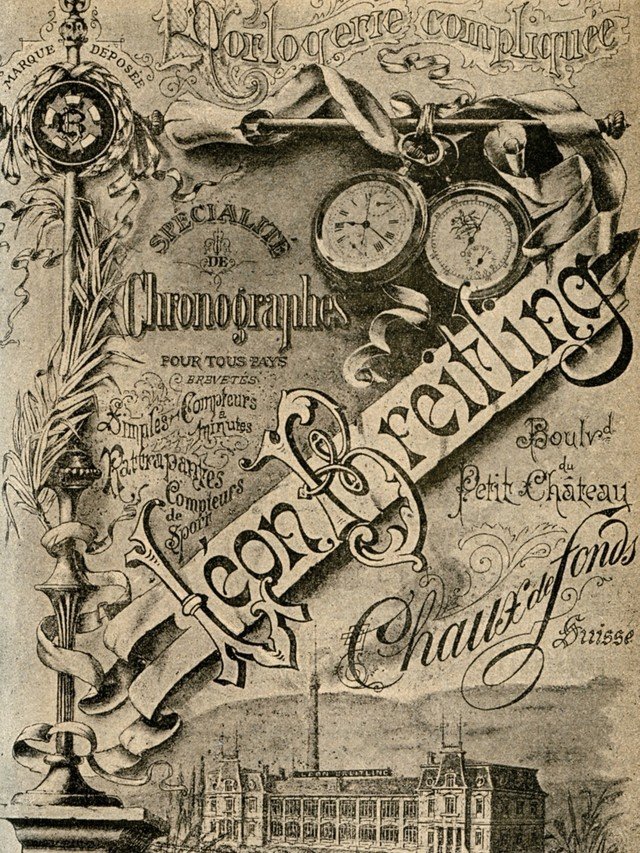 Horlogerie compliquée
MARQUE DÉPOSÉE
B
SPÉCIALITÉ
DE
Chronographes
POUR TOUS PAYS
BREVETÉS
Simples Compteurs
à
minutes
Rattrapantes
Compteurs
de
Sport
Léon Breitling
Boulvd.
du
Petit Château
Chaux de fonds
Suisse
LÉON BREITLING